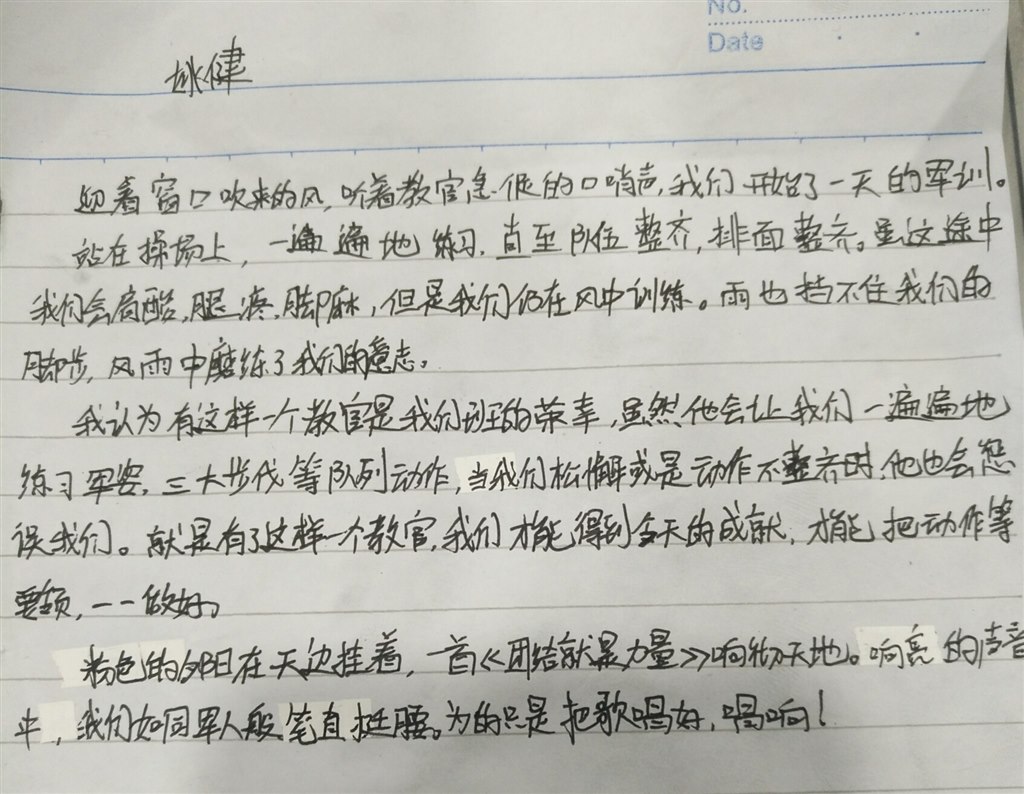 No.
Date
姚健
迎着窗口吹来的风,听着教官急促的口哨声,我们开始了一天的军训。
站在操场上,一遍遍地练习,直至队伍整齐,排面整齐。虽这途中
我们会肩酸,腿疼,脚麻,但是我们仍在风中训练。雨也挡不住我们的
脚步,风雨中磨练了我们的意志。
我认为有这样一个教官是我们班的荣幸,虽然他会让我们一遍遍地
练习军姿,三大步伐等队列动作,当我们松懈或是动作不整齐时,他也会
误我们。就是有了这样一个教官,我们才能得到今天的成就,才能把动作等
要领,一一做好。
粉色的夕阳在天边挂着,一首《团结就是力量》响彻天地。响亮的声音
中,我们如同军人般笔直挺腰。为的只是把歌唱好,唱响!